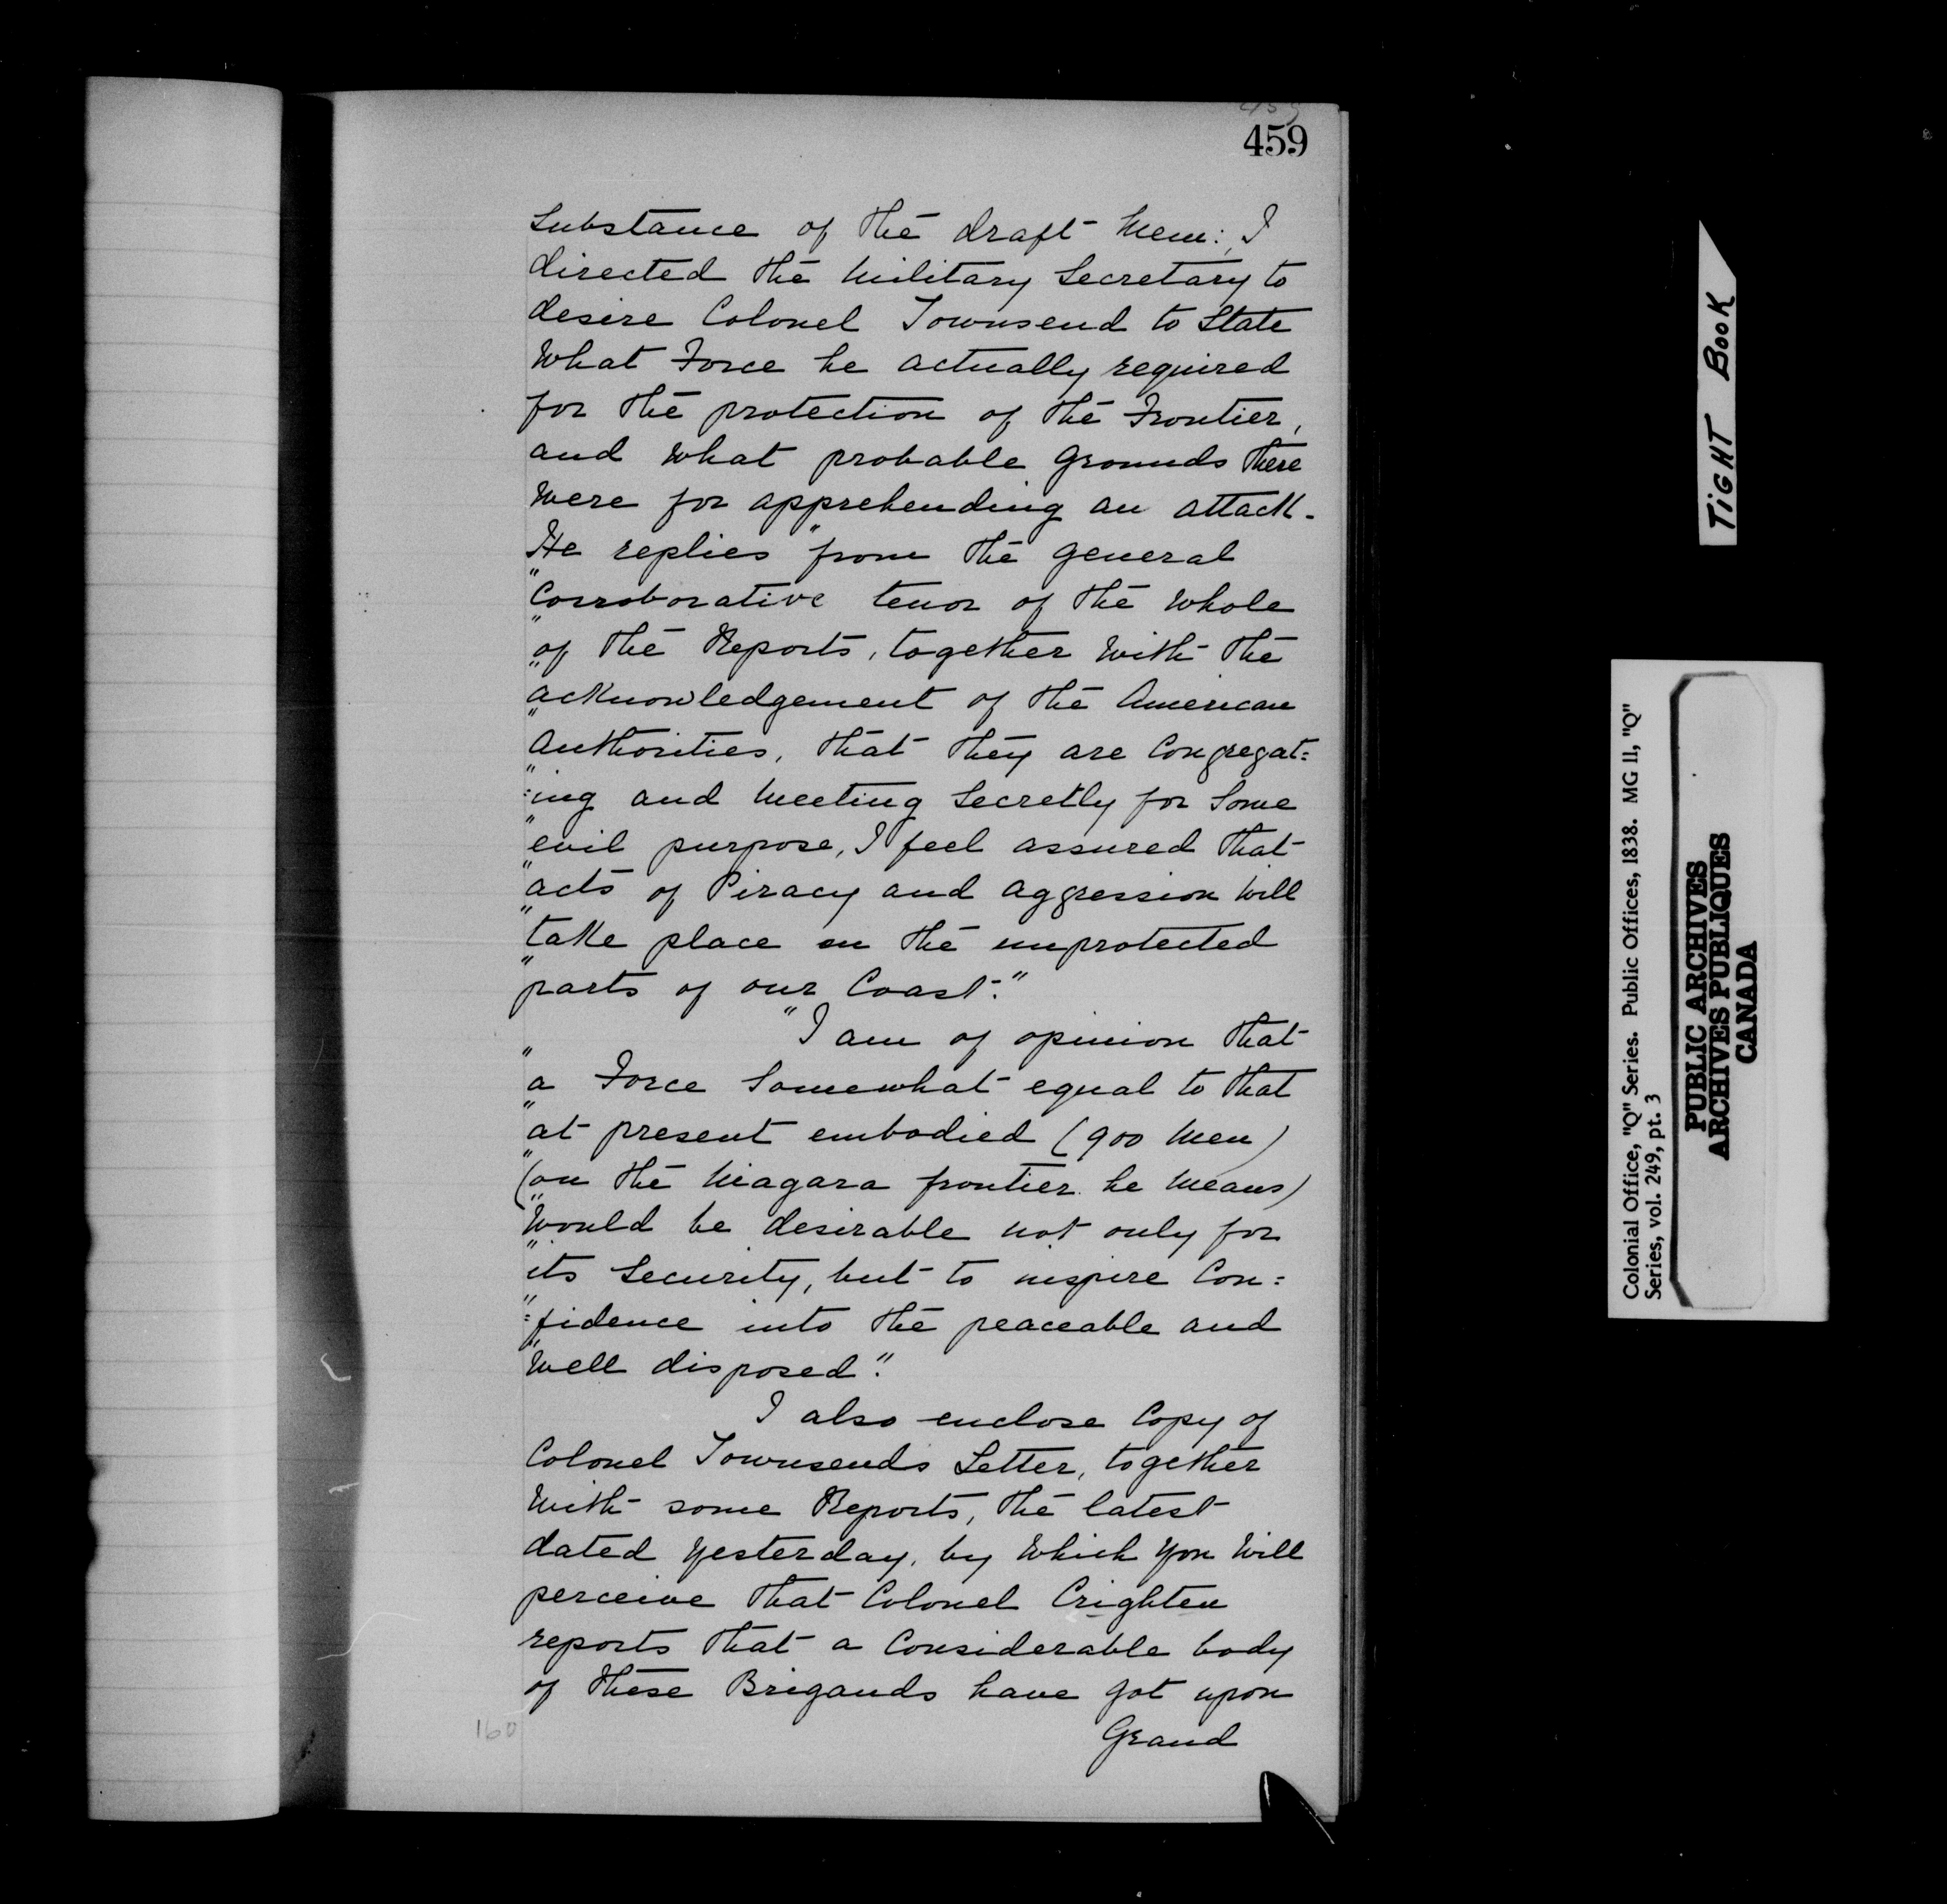 459
459
Substance of the draft Mem:, I
directed the Military Secretary to
desire Colonel Townsend to State
What Force he actually required
for the protection of the Frontier,
and What probable Grounds there
Were for apprehending an attack.
He replies "from the general
"Corroborative tenor of the Whole
"of the Reports, together With the
"acknowledgement of the American
"Authorities, that they are Congregat:
":ing and Meeting Secretly for Some
"evil purpose, I feel assured that
"acts of Piracy and aggression Will
"take place on the unprotected
"parts of our Coast."
"I am of opinion that
"a Force Somewhat equal to that
"at present embodied (900 Men)
"(on the Niagara frontier he Means)
"Would be desirable not only for
"its Security, but to inspire Con:
":fidence into the peaceable and
"Well disposed".
I also enclose Copy of
Colonel Townsends Letter, together
With some Reports, the latest
dated Yesterday, by Which You Will
perceive that Colonel Crighten
reports that a Considerable body
of these Brigands have got upon
Grand
160
TIGHT BOOK
Colonial Office, "Q" Series. Public Offices, 1838. MG 11, "Q"
Series, vol. 249, pt. 3
PUBLIC ARCHIVES
ARCHIVES PUBLIQUES
CANADA